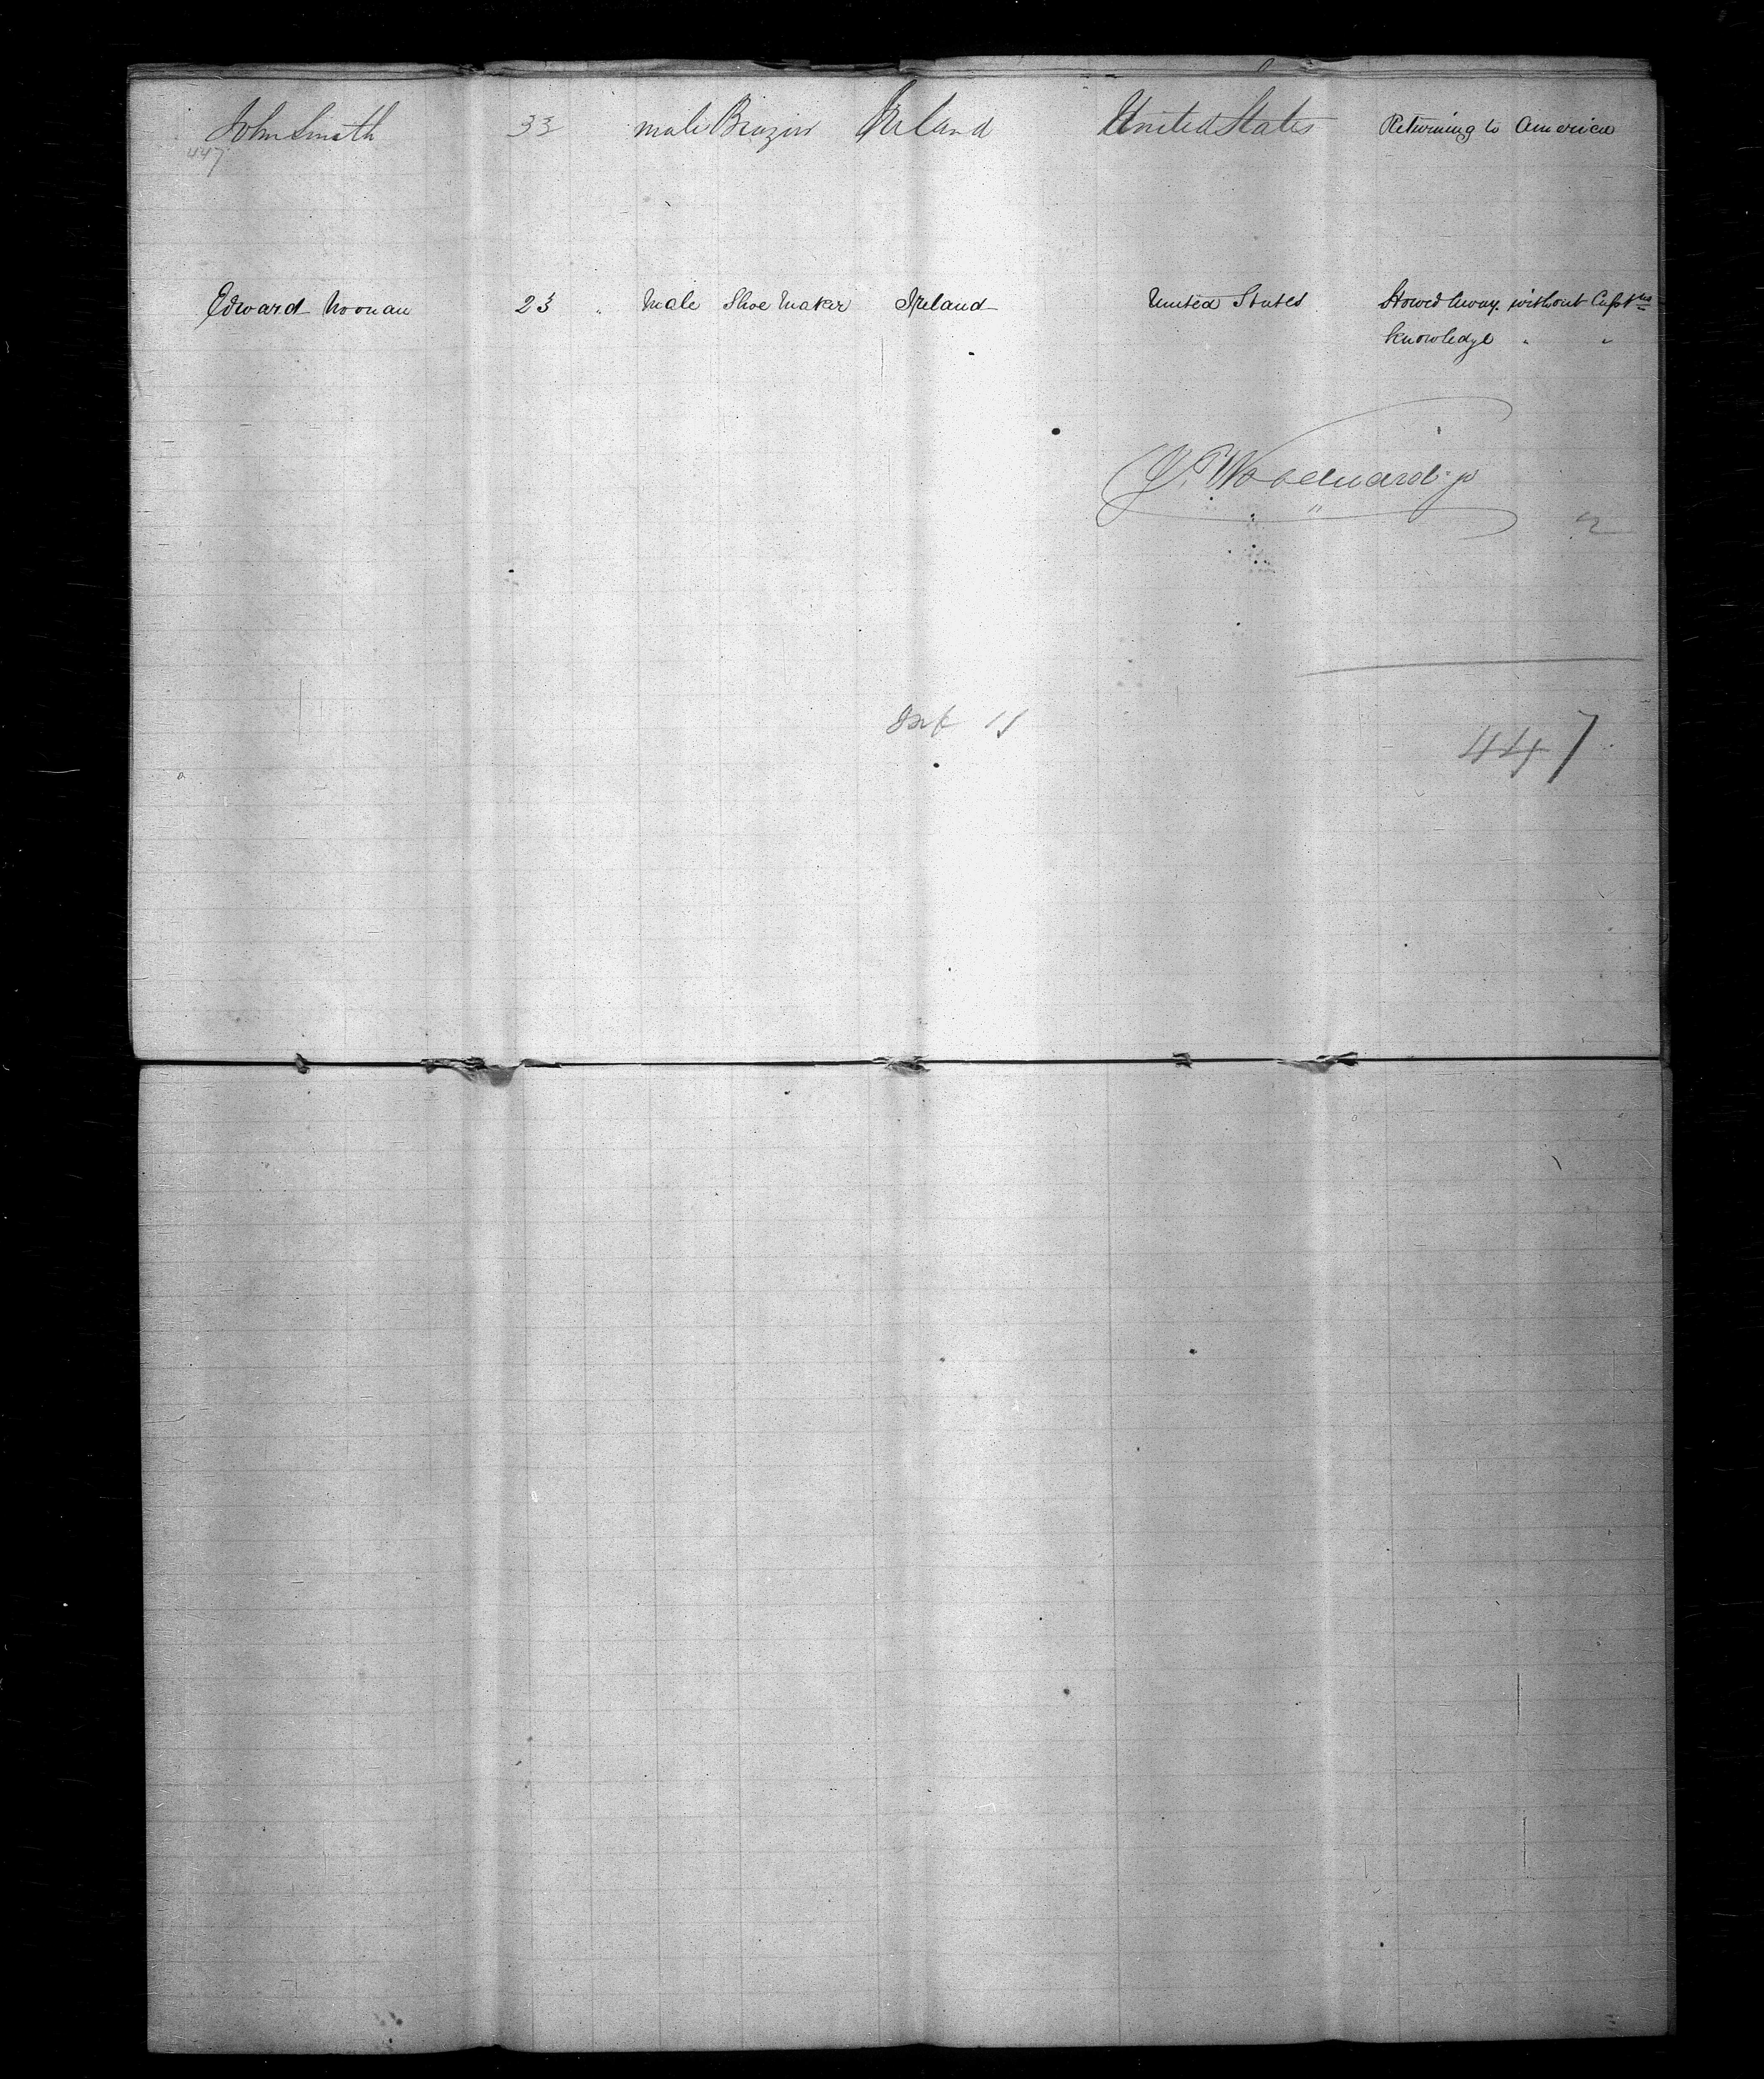 John Smith 33 male Brazier Ireland United States Returning to America
447
Edward Noonan 23 " Male Shoe Maker Ireland United States Stowed Away without Captns
knowledge " "
Woodward
Inf 11
447